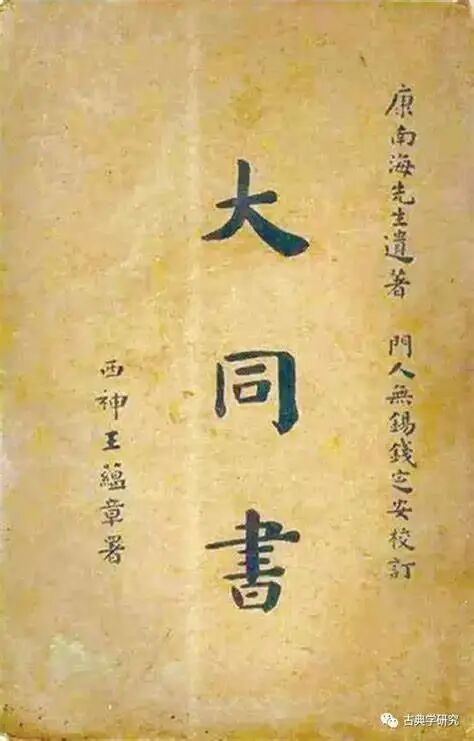 康南海先生遺著 門人無錫錢定安校訂
大同書
西神王蘊章署
古典学研究